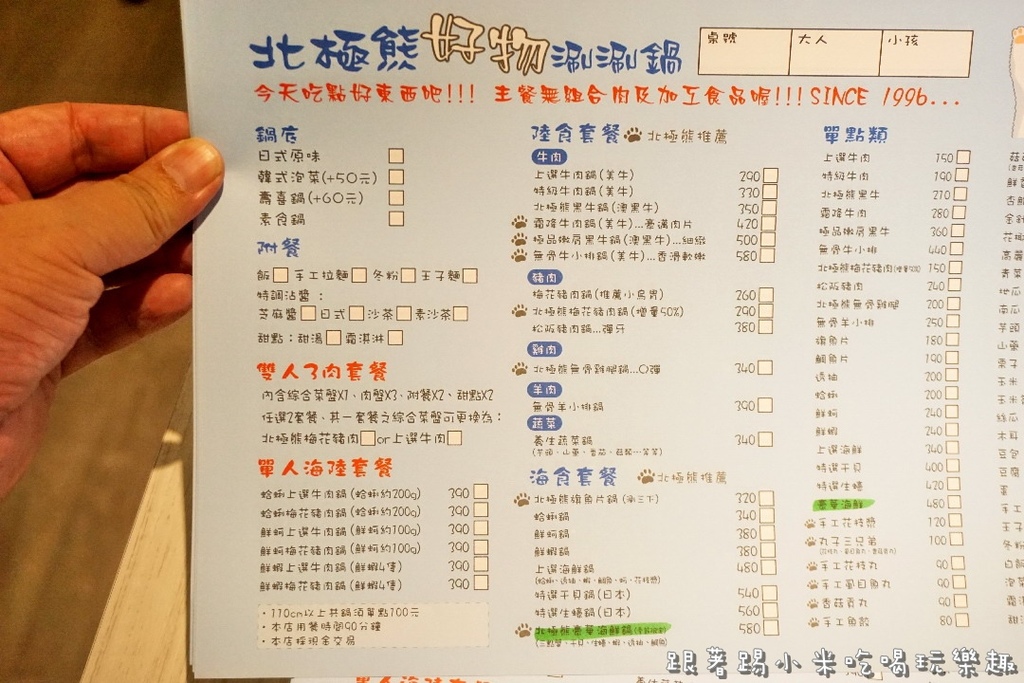 北極熊好物涮涮鍋
桌號 大人 小孩
今天吃點好東西吧!!! 主餐無組合肉及加工食品喔!!! SINCE 1996...
鍋底
日式原味
韓式泡菜(+50元)
壽喜鍋(+60元)
素食鍋
附餐
飯 手工拉麵 冬粉 王子麵
特調沾醬：
芝麻醬 日式 沙茶 素沙茶
甜點：甜湯 霜淇淋
雙人3肉套餐
內含綜合菜盤X1、肉盤X3、附餐X2、甜點X2
任選2套餐、其一套餐之綜合菜盤可更換為：
北極熊梅花豬肉 or 上選牛肉
單人海陸套餐
蛤蜊上選牛肉鍋(蛤蜊約200g) 390
蛤蜊梅花豬肉鍋(蛤蜊約200g) 390
鮮蚵上選牛肉鍋(鮮蚵約100g) 390
鮮蚵梅花豬肉鍋(鮮蚵約100g) 390
鮮蝦上選牛肉鍋(鮮蝦4隻) 390
鮮蝦梅花豬肉鍋(鮮蝦4隻) 390
·110cm以上共鍋須單點100元
·本店用餐時間90分鐘
·本店採現金交易
陸食套餐 北極熊推薦
牛肉
上選牛肉鍋(美牛) 290
特級牛肉鍋(美牛) 330
北極熊黑牛鍋(澳黑牛) 350
霜降牛肉鍋(美牛)...豪邁肉片 420
極品嫩肩黑牛鍋(澳黑牛)...細緻 500
無骨牛小排鍋(美牛)...香滑軟嫩 580
豬肉
梅花豬肉鍋(推薦小鳥胃) 260
北極熊梅花豬肉鍋(增量50%) 290
松阪豬肉鍋...彈牙 380
雞肉
北極熊無骨雞腿鍋...Q彈 340
羊肉
無骨羊小排鍋 390
蔬菜
養生蔬菜鍋 340
(芋頭、山藥、番茄、菇類...等等)
海食套餐 北極熊推薦
北極熊旗魚片鍋(涮三下) 320
蛤蜊鍋 340
鮮蚵鍋 380
鮮蝦鍋 380
上選海鮮鍋 480
(蛤蜊、透抽、蝦、鯛魚、蚵、花枝漿)
特選干貝鍋(日本) 540
特選生蠔鍋(日本) 560
北極熊豪華海鮮鍋 580
單點類
上選牛肉 150
特級牛肉 190
北極熊牛肉 210
霜降牛肉 280
極品嫩肩黑牛 360
無骨牛小排 440
北極熊梅花豬肉(增量50%) 150
松阪豬肉 240
北極熊無骨雞腿 200
無骨羊小排 250
旗魚片 180
鯛魚片 190
透抽 200
蛤蜊 200
鮮蚵 240
鮮蝦 240
上選海鮮 340
特選干貝 400
特選生蠔 420
豪華海鮮 480
手工花枝漿 120
丸子三兄弟 100
手工花枝丸 90
手工虱目魚丸 90
香菇貢丸 90
手工魚餃 80
跟著踢小米吃喝玩樂趣